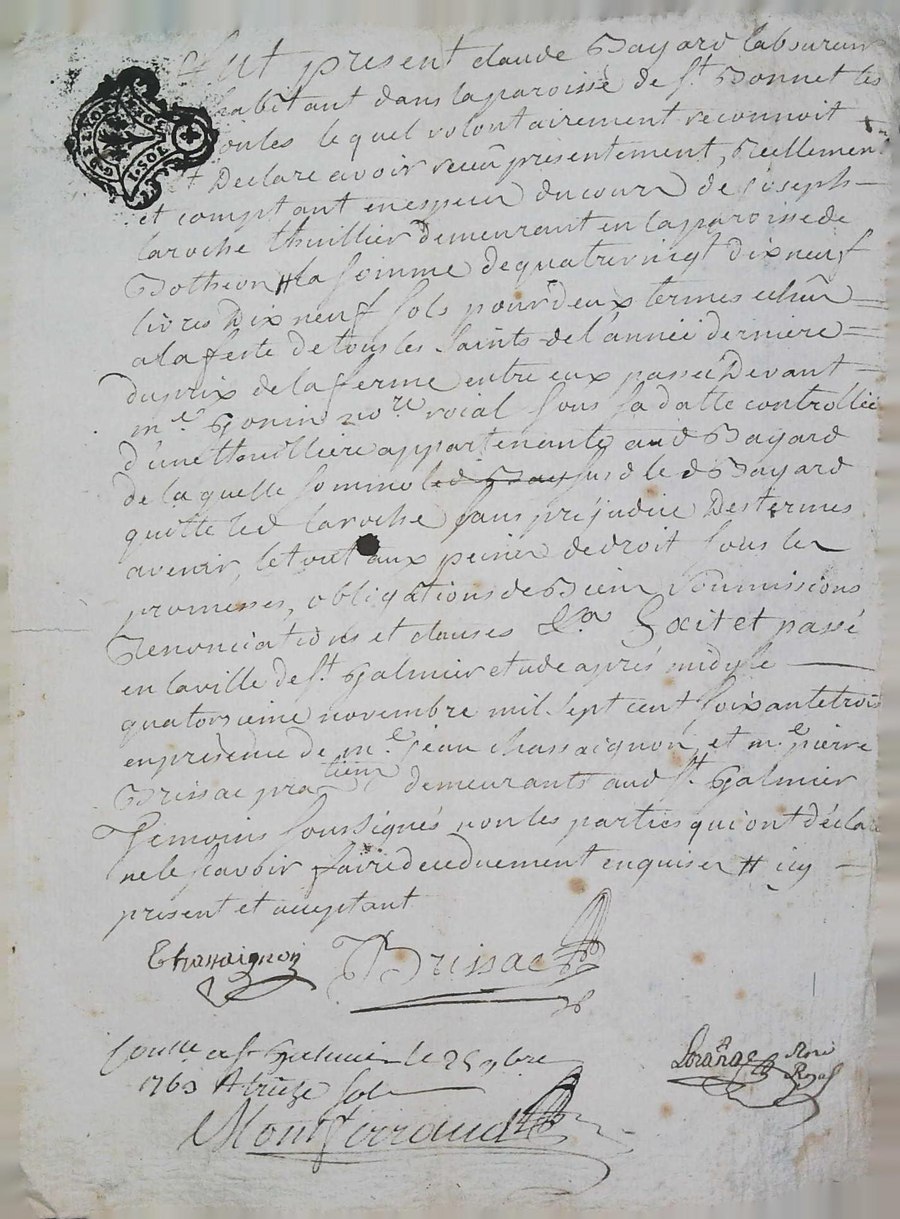 Fut present claude Bayard laboureur
habitant dans la paroisse de St. Bonnet les
oules lequel volontairement reconnoit
et Declare avoir receu presentement, Reellement
et comptant en espece du cour de joseph
laroche thuillier demeurant en la paroisse de
Botheon # la somme de quatrevingt dixneuf
livres Dix neuf sols pour deux termes echeu
a la feste de tous les saints de l'année derniere
du prix de la ferme entre eux passée Devant
me. Gonin nore. roial sous sa datte controllée
d'une thuilliere appartenante aud Bayard
de laquelle somme led Bayard
quitte led laroche sans prejudice Des termes
avenir, le tout aux peines de droit sous les
promesses, obligations de Biens Soumissions
Renonciations et clauses &a. Fait et passé
en la ville de St. Galmier etude après midy le
quatorsieme novembre mil sept cent soixante trois
en presence de me. jean chassaignon, et me. pierre
Brissac praticiens demeurants aud St. Galmier
Temoins soussignés non les parties qui ont déclaré
ne le scavoir faire de ce duement enquises # icy
present et acceptant
Chassaignon Brissac
Conllé a St Galmier le 25 9bre
1763 R treize sols
Montferrand
Nore Royal
1. SOL